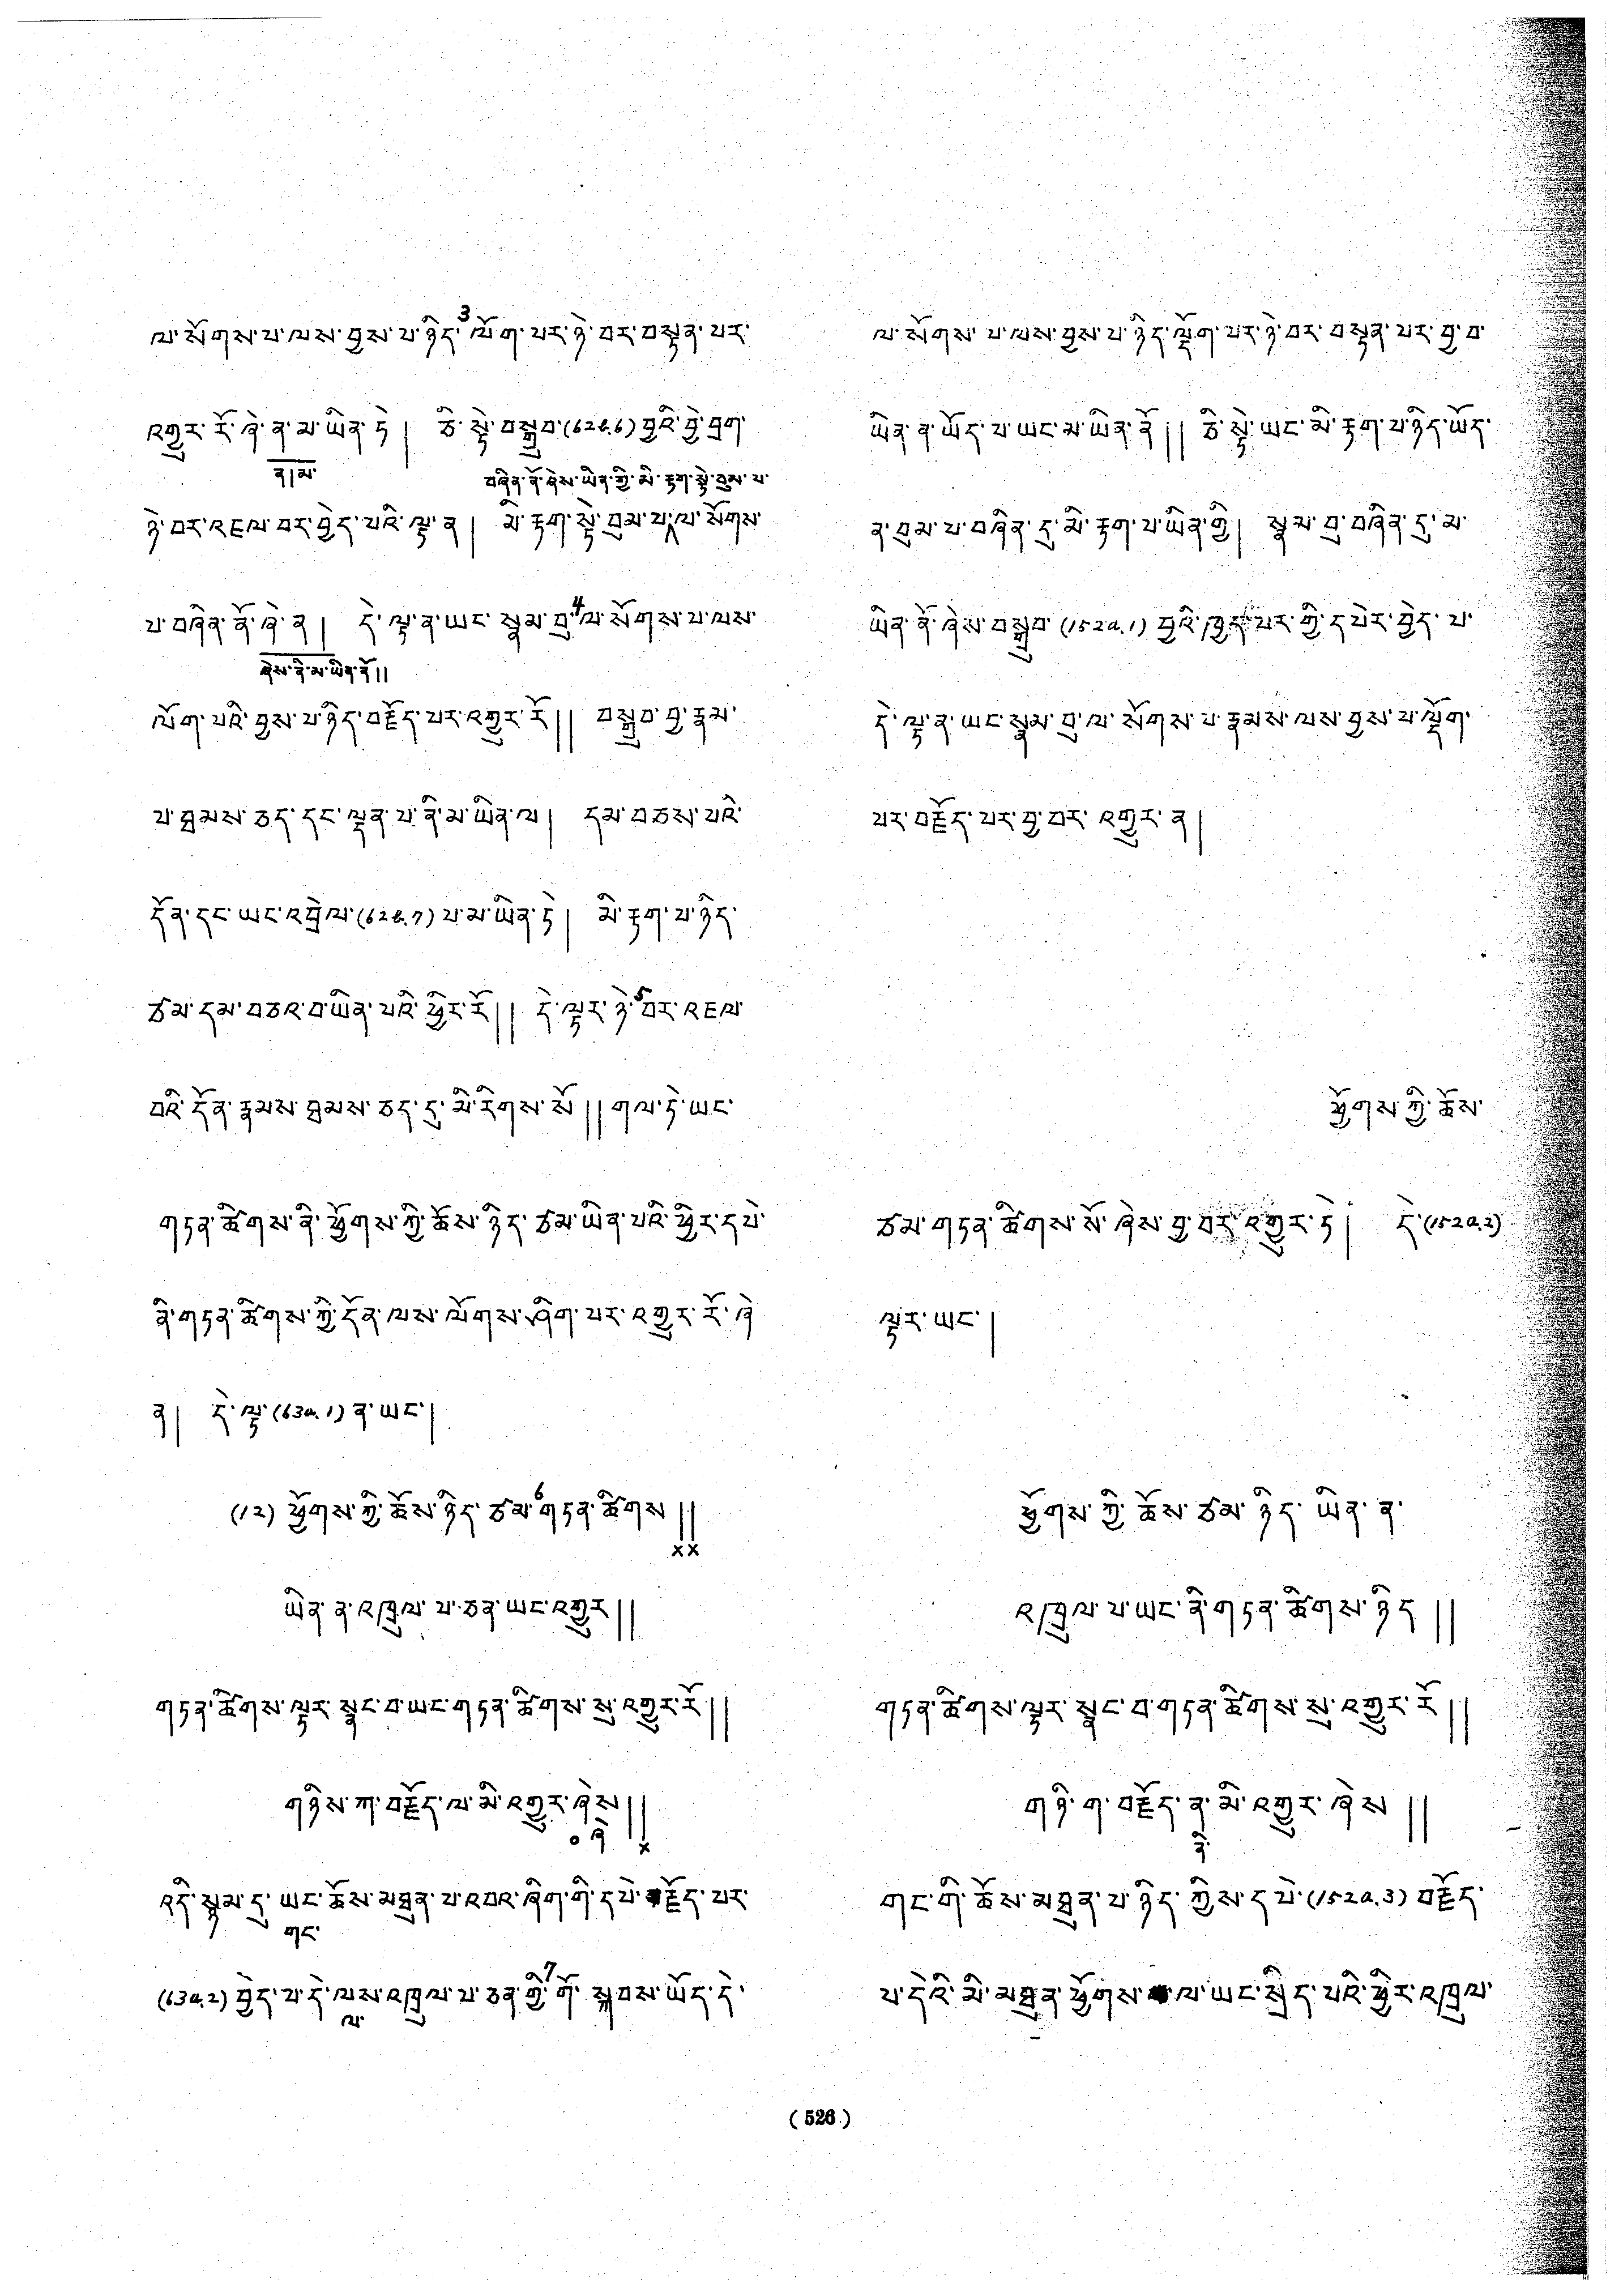 ལ་སོགས་པ་ལས་བྱས་པ་ཉིད་3ལོག་པར་ཉེ་བར་བསྟན་པར་
འགྱུར་རོ་ཞེ་ན་མ་ཡིན་ཏེ། ཅི་སྟེ་བསྒྲུབ་(62b.6)བྱའི་བྱེ་བྲག་
ན།མ་
བཞིན་ནོ་ཞེས་ཡིན་གྱི་མི་རྟག་སྟེ་བུམ་པ་
ཉེ་བར་འཇལ་བར་བྱེད་པའི་ལྟ་ན། མི་རྟག་སྟེ་བུམ་པ་ལ་སོགས་
པ་བཞིན་ནོ་ཞེ་ན། དེ་ལྟ་ན་ཡང་སྣམ་བུ་4ལ་སོགས་པ་ལས་
ཞེས་ནི་མ་ཡིན་ནོ།།
ལོག་པའི་བྱས་པ་ཉིད་བརྗོད་པར་འགྱུར་རོ།། བསྒྲུབ་བྱ་རྣམ་
པ་ཐམས་ཅད་དང་ལྡན་པ་ནི་མ་ཡིན་ལ། དམ་བཅས་པའི་
དོན་དང་ཡང་འབྲེལ་(62b.7)པ་མ་ཡིན་ཏེ། མི་རྟག་པ་ཉིད་
ཙམ་དམ་བཅའ་བ་ཡིན་པའི་ཕྱིར་རོ།། དེ་ལྟར་ཉེ་5བར་འཇལ་
བའི་དོན་རྣམས་ཐམས་ཅད་དུ་མི་རིགས་སོ།།གལ་ཏེ་ཡང་
གཏན་ཚིགས་ནི་ཕྱོགས་ཀྱི་ཆོས་ཉིད་ཙམ་ཡིན་པའི་ཕྱིར་དཔེ་
ནི་གཏན་ཚིགས་ཀྱི་དོན་ལས་ལོགས་ཤིག་པར་འགྱུར་རོ་ཞེ་
ན། དེ་ལྟ་(63a.1)ན་ཡང་།
(12) ཕྱོགས་ཀྱི་ཆོས་ཉིད་ཙམ་6གཏན་ཚིགས།།
××
ཡིན་ན་འཁྲུལ་པ་ཅན་ཡང་འགྱུར།།
གཏན་ཚིགས་ལྟར་སྣང་བ་ཡང་གཏན་ཚིགས་སུ་འགྱུར་རོ།།
གཉིས་ཀ་བརྗོད་ལ་མི་འགྱུར་ཞེས།།
༠ཞེ ×
འདི་སྙམ་དུ་ཡང་ཆོས་མཐུན་པ་འབའ་ཞིག་གི་དཔེ་བརྗོད་པར་
གང་
(63a.2)བྱེད་པ་དེ་ལས་འཁྲུལ་པ་ཅན་གྱི་7གོ་སྐབས་ཡོད་དེ་
ལ་
ལ་སོགས་པ་ལས་བྱས་པ་ཉིད་ལྡོག་པར་ཉེ་བར་བསྟན་པར་བྱ་བ་
ཡིན་ན་ཡོད་པ་ཡང་མ་ཡིན་ནོ།། ཅི་སྟེ་ཡང་མི་རྟག་པ་ཉིད་ཡོད་
ན་བུམ་པ་བཞིན་དུ་མི་རྟག་པ་ཡིན་གྱི། སྣམ་བུ་བཞིན་དུ་མ་
ཡིན་ནོ་ཞེས་བསྒྲུབ་(152a.1)བྱའི་ཁྱད་པར་གྱི་དཔེར་བྱེད་པ་
དེ་ལྟ་ན་ཡང་སྣམ་བུ་ལ་སོགས་པ་རྣམས་ལས་བྱས་པ་ལྡོག་
པར་བརྗོད་པར་བྱ་བར་འགྱུར་ན།
ཕྱོགས་ཀྱི་ཆོས་
ཙམ་གཏན་ཚིགས་སོ་ཞེས་བྱ་བར་འགྱུར་ཏེ། དེ་(152a.2)
ལྟར་ཡང་།
ཕྱོགས་ཀྱི་ཆོས་ཙམ་ཉིད་ཡིན་ན་
འཁྲུལ་པ་ཡང་ནི་གཏན་ཚིགས་ཉིད།།
གཏན་ཚིགས་ལྟར་སྣང་བ་གཏན་ཚིགས་སུ་འགྱུར་རོ།།
གཉི་ག་བརྗོད་ན་མི་འགྱུར་ཞེས།།
ནི་
གང་གི་ཆོས་མཐུན་པ་ཉིད་ཀྱིས་དཔེ་(152a.3)བརྗོད་
པ་དེའི་མི་མཐུན་ཕྱོགས་ལ་ཡང་སྲིད་པའི་ཕྱིར་འཁྲུལ་
(526)